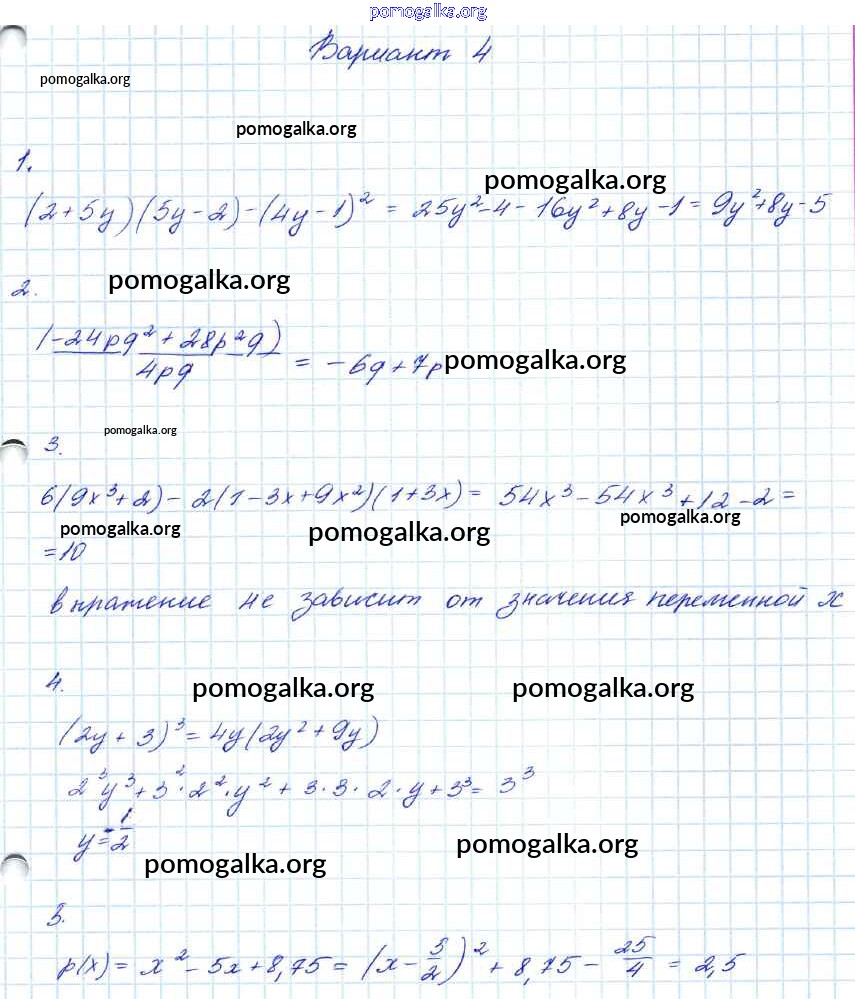 pomogalka.org
Вариант 4
pomogalka.org
pomogalka.org
1.
pomogalka.org
(2+5y)(5y-2)-(4y-1)² = 25y²-4-16y²+8y-1 = 9y²+8y-5
2.
pomogalka.org
(-24pq²+28p²q)/4pq = -6q+7p
pomogalka.org
3.
pomogalka.org
6(9x³+2)-2(1-3x+9x²)(1+3x) = 54x³-54x³+12-2 =
pomogalka.org
pomogalka.org
pomogalka.org
=10
выражение не зависит от значения переменной x
4.
pomogalka.org
pomogalka.org
(2y+3)³ = 4y(2y²+9y)
2³y³+3²·2²·y²+3·3·2·y+3³= 3³
y=-1/2
pomogalka.org
pomogalka.org
5.
p(x) = x²-5x+8,75 = (x-5/2)²+8,75-25/4 = 2,5